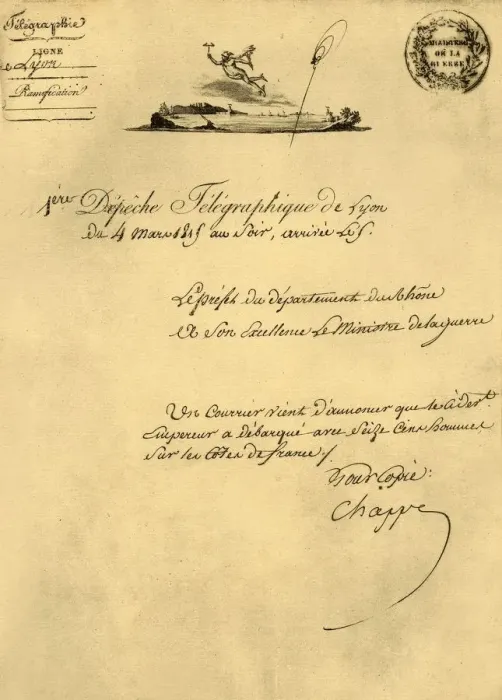 Télégraphie
LIGNE
de Lyon
Ramification
MINISTERE
DE LA
GUERRE
1ère Dépêche Télégraphique de Lyon
du 4 Mars 1815 au Soir, arrivée le 5.
Le préfet du département du Rhône
A Son Excellence Le Ministre de la guerre
Un Courrier vient d'annoncer que le cidevt
Empereur a débarqué avec Seize Cens hommes
Sur les Côtes de france /
Pour Copie :
Chappe